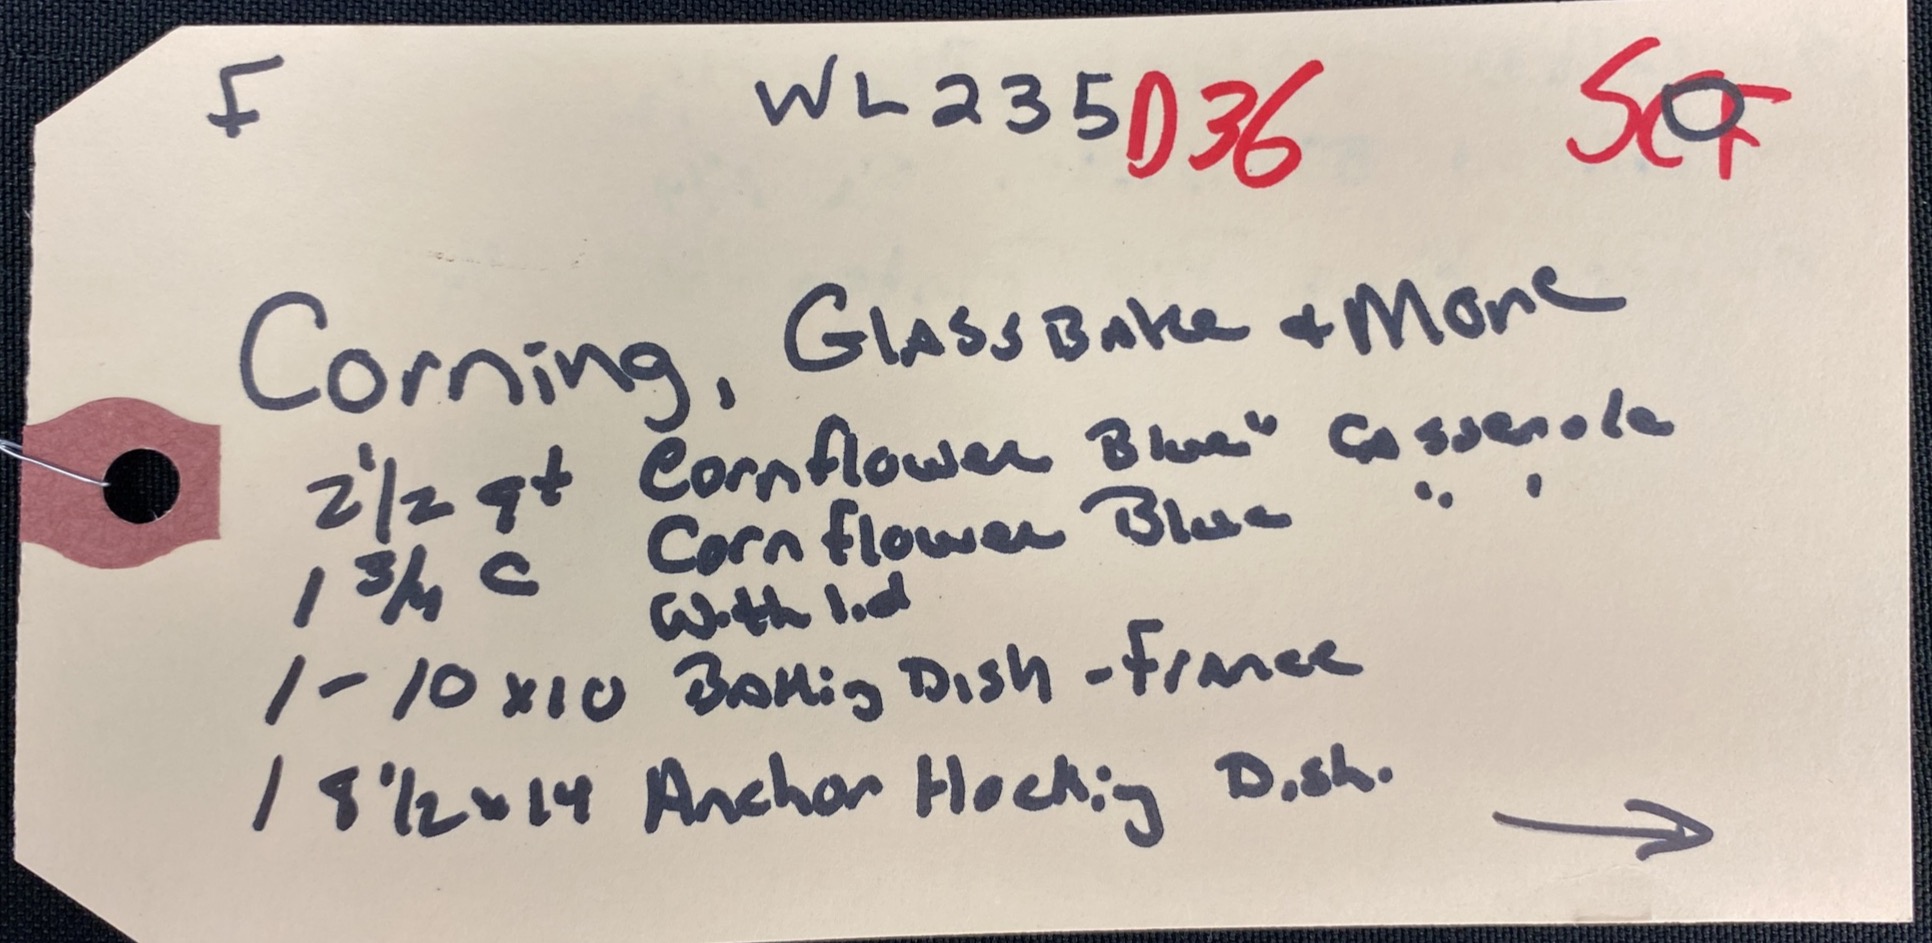 F WL235 D36 SCF O
Corning, GlassBake & More
2 1/2 qt Cornflower Blue" Casserole
1 3/4 C Cornflower Blue " "
with lid
1 - 10 x 10 Bakig Dish - France
1 8 1/2 x 14 Anchor Hockig Dish.
→